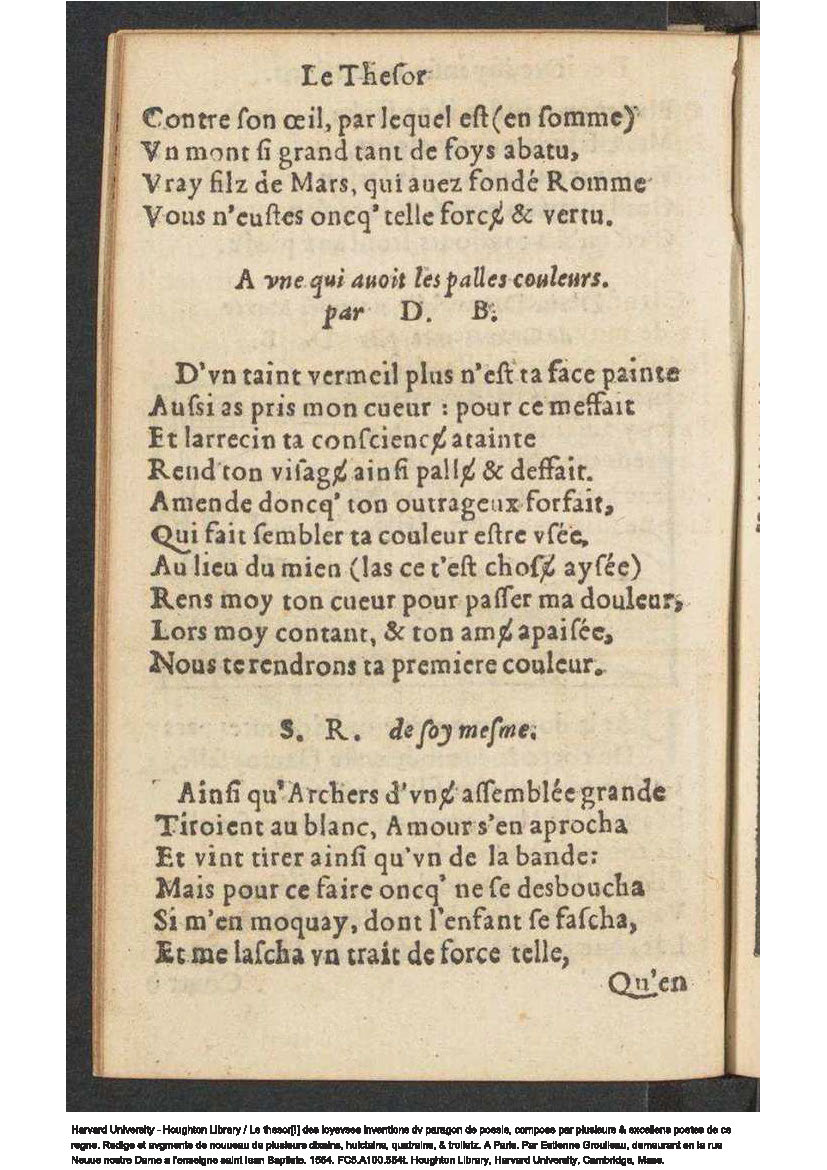 Le Theſor
Contre ſon œil, par lequel eſt (en ſomme)
Vn mont ſi grand tant de foys abatu,
Vray filz de Mars, qui auez fondé Romme
Vous n'euſtes oncq' telle forcɇ & vertu.
A vne qui auoit les palles couleurs.
par D. B.
D'vn taint vermeil plus n'eſt ta face painte
Auſsi as pris mon cueur : pour ce meffait
Et larrecin ta conſciencɇ atainte
Rend ton viſagɇ ainſi pallɇ & deffait.
Amende doncq' ton outrageux forfait,
Qui fait ſembler ta couleur eſtre vſée,
Au lieu du mien (las ce t'eſt choſɇ ayſée)
Rens moy ton cueur pour paſſer ma douleur,
Lors moy contant, & ton amɇ apaiſée,
Nous te rendrons ta premiere couleur.
S. R. de ſoy meſme.
Ainſi qu'Archers d'vnɇ aſſemblée grande
Tiroient au blanc, Amour s'en aprocha
Et vint tirer ainſi qu'vn de la bande:
Mais pour ce faire oncq' ne ſe desboucha
Si m'en moquay, dont l'enfant ſe faſcha,
Et me laſcha vn trait de force telle,
Qu'en
Harvard University - Houghton Library / Le thesor[!] des ioyevses inventions dv paragon de poesie, compose par plusieurs & excellens poetes de ce
regne. Redige et avgmente de nouueau de plusieurs dixains, huictains, quatrains, & trolletz. A Paris. Par Estienne Groulleau, demeurant en la rue
Neuue nostre Dame a l'enseigne saint Iean Baptiste. 1554. FC5.A100.554t. Houghton Library, Harvard University, Cambridge, Mass.